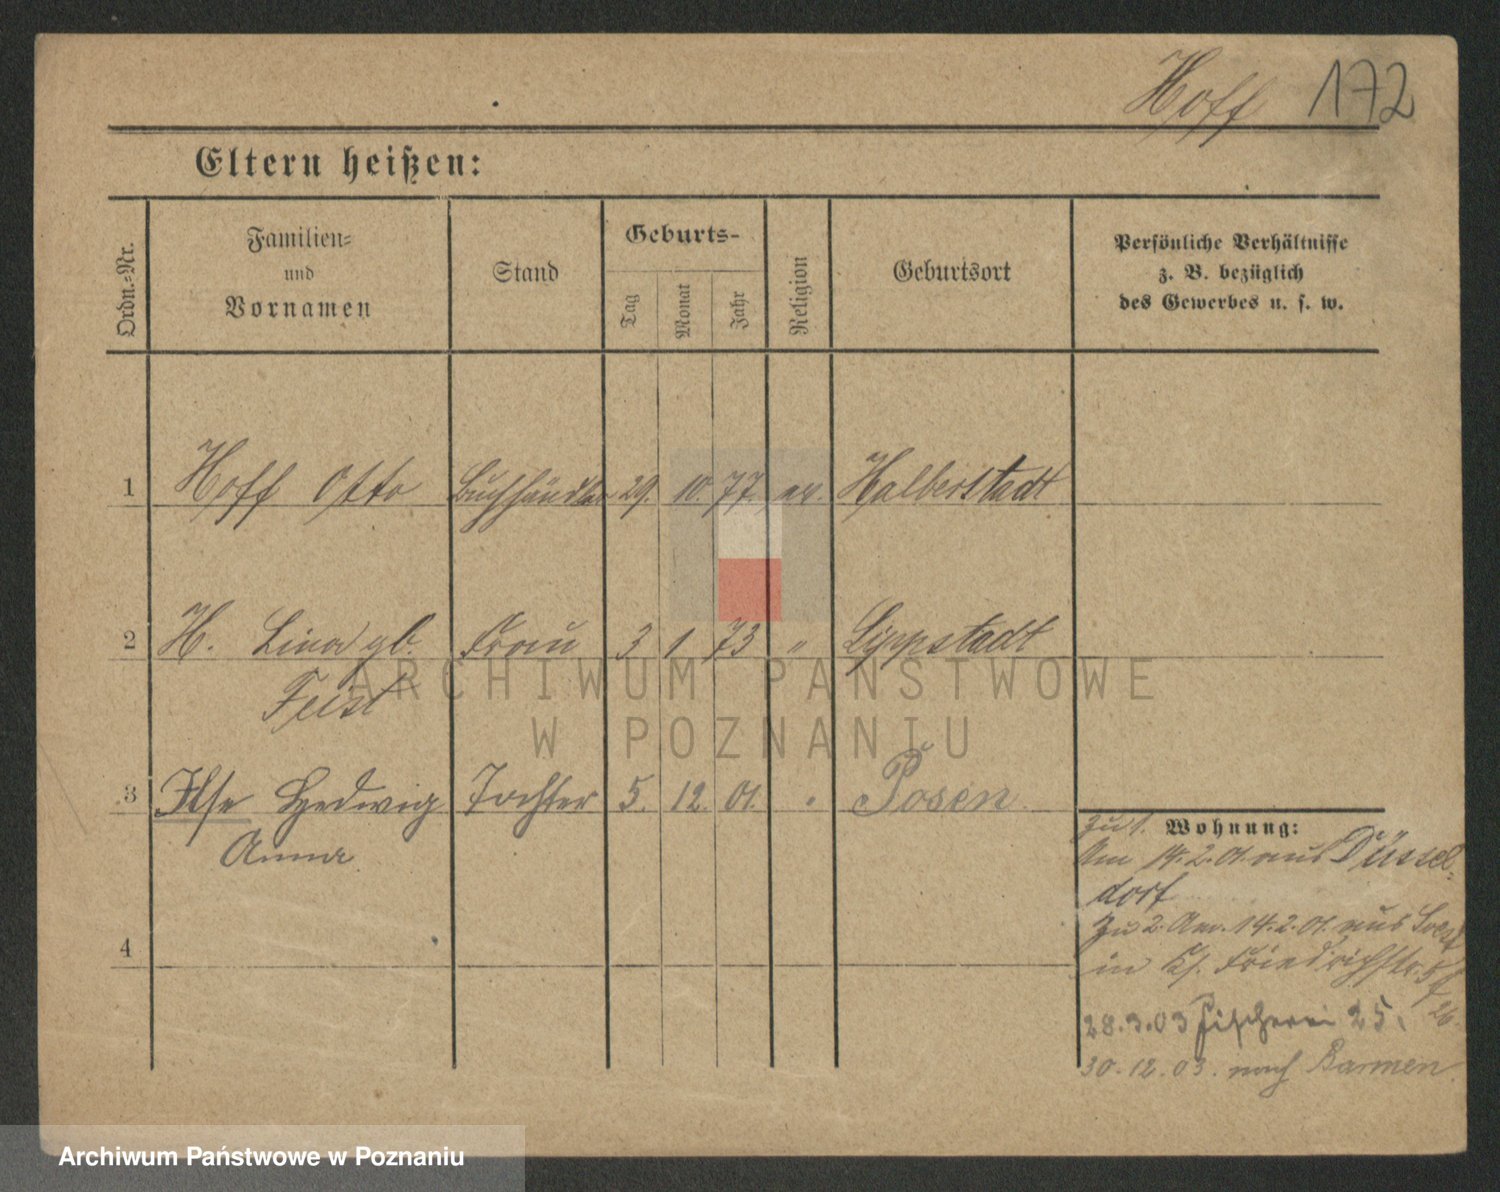 Hoff 172
Eltern heißen:
Ordn.-Nr.
Familien-
und
Vornamen
Stand
Geburts-
Tag
Monat
Jahr
Religion
Geburtsort
Persönliche Verhältnisse
z. B. bezüglich
des Gewerbes u. s. w.
1 Hoff Otto Buchhändler 29. 10. 77 ev. Halberstadt
2 H. Lina gb. Frau 3 1 73 " Lippstadt
Feist
ARCHIWUM PAŃSTWOWE
W POZNANIU
3 Ilse Hedwig Tochter 5. 12. 01. " Posen
Anna
4
Zu 1. Wohnung:
Am 14.2.01 aus Düssel-
dorf
Zu 2. Am 14.2.01. aus Soest
in Friedrichstr.
26.
28.3.03 Fischerei 25.
30.12.03. nach Barmen
Archiwum Państwowe w Poznaniu